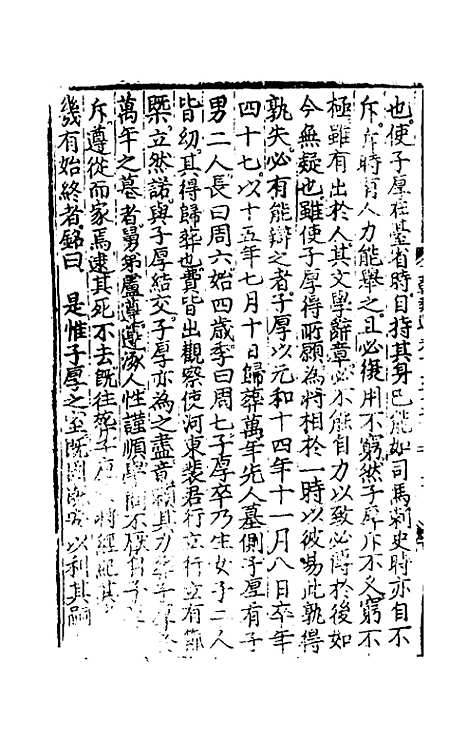 也使子厚在臺省時自持其身已能如司馬刺史時亦自不
斥斥時有人力能舉之且必復用不窮然子厚斥不久窮不
極雖有出於人其文學辭章必不能自力以致必傳於後如
今無疑也雖使子厚得所願為將相於一時以彼易此孰得
孰失必有能辯之者子厚以元和十四年十一月八日卒年
四十七以十五年七月十日歸葬萬年先人墓側子厚有子
男二人長曰周六始四歲季曰周七子厚卒乃生女子二人
皆幼其得歸葬也費皆出觀察使河東裴君行立行立有節
槩立然諾與子厚結交子厚亦為之盡竟賴其力葬子厚於
萬年之墓者舅弟盧遵遵涿人性謹順學問不厭自子厚
斥遵從而家焉逮其死不去既往葬子厚將經紀其
幾有始終者銘曰 是惟子厚之室既固既安以利其嗣